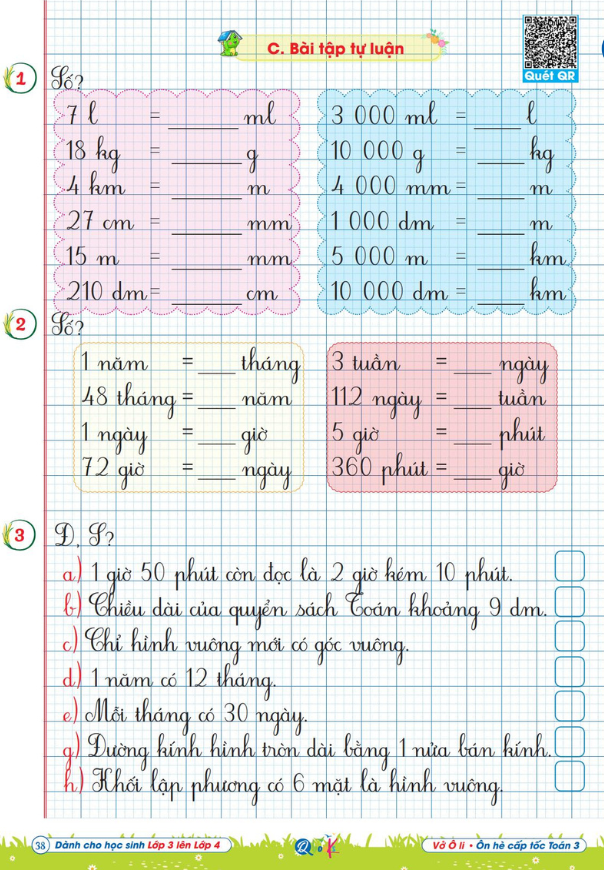 C. Bài tập tự luận
Quét QR
1 Số?
7 l = ______ ml
18 kg = ______ g
4 km = ______ m
27 cm = ______ mm
15 m = ______ mm
210 dm = ______ cm
3 000 ml = ____ l
10 000 g = ____ kg
4 000 mm = ____ m
1 000 dm = ____ m
5 000 m = ____ km
10 000 dm = ____ km
2 Số?
1 năm = ___ tháng
48 tháng = ___ năm
1 ngày = ___ giờ
72 giờ = ___ ngày
3 tuần = ___ ngày
112 ngày = ___ tuần
5 giờ = ___ phút
360 phút = ___ giờ
3 Đ, S?
a) 1 giờ 50 phút còn đọc là 2 giờ kém 10 phút.
b) Chiều dài của quyển sách Toán khoảng 9 dm.
c) Chỉ hình vuông mới có góc vuông.
d) 1 năm có 12 tháng.
e) Mỗi tháng có 30 ngày.
g) Đường kính hình tròn dài bằng 1 nửa bán kính.
h) Khối lập phương có 6 mặt là hình vuông.
38 Dành cho học sinh Lớp 3 lên Lớp 4
Vở Ô li • Ôn hè cấp tốc Toán 3